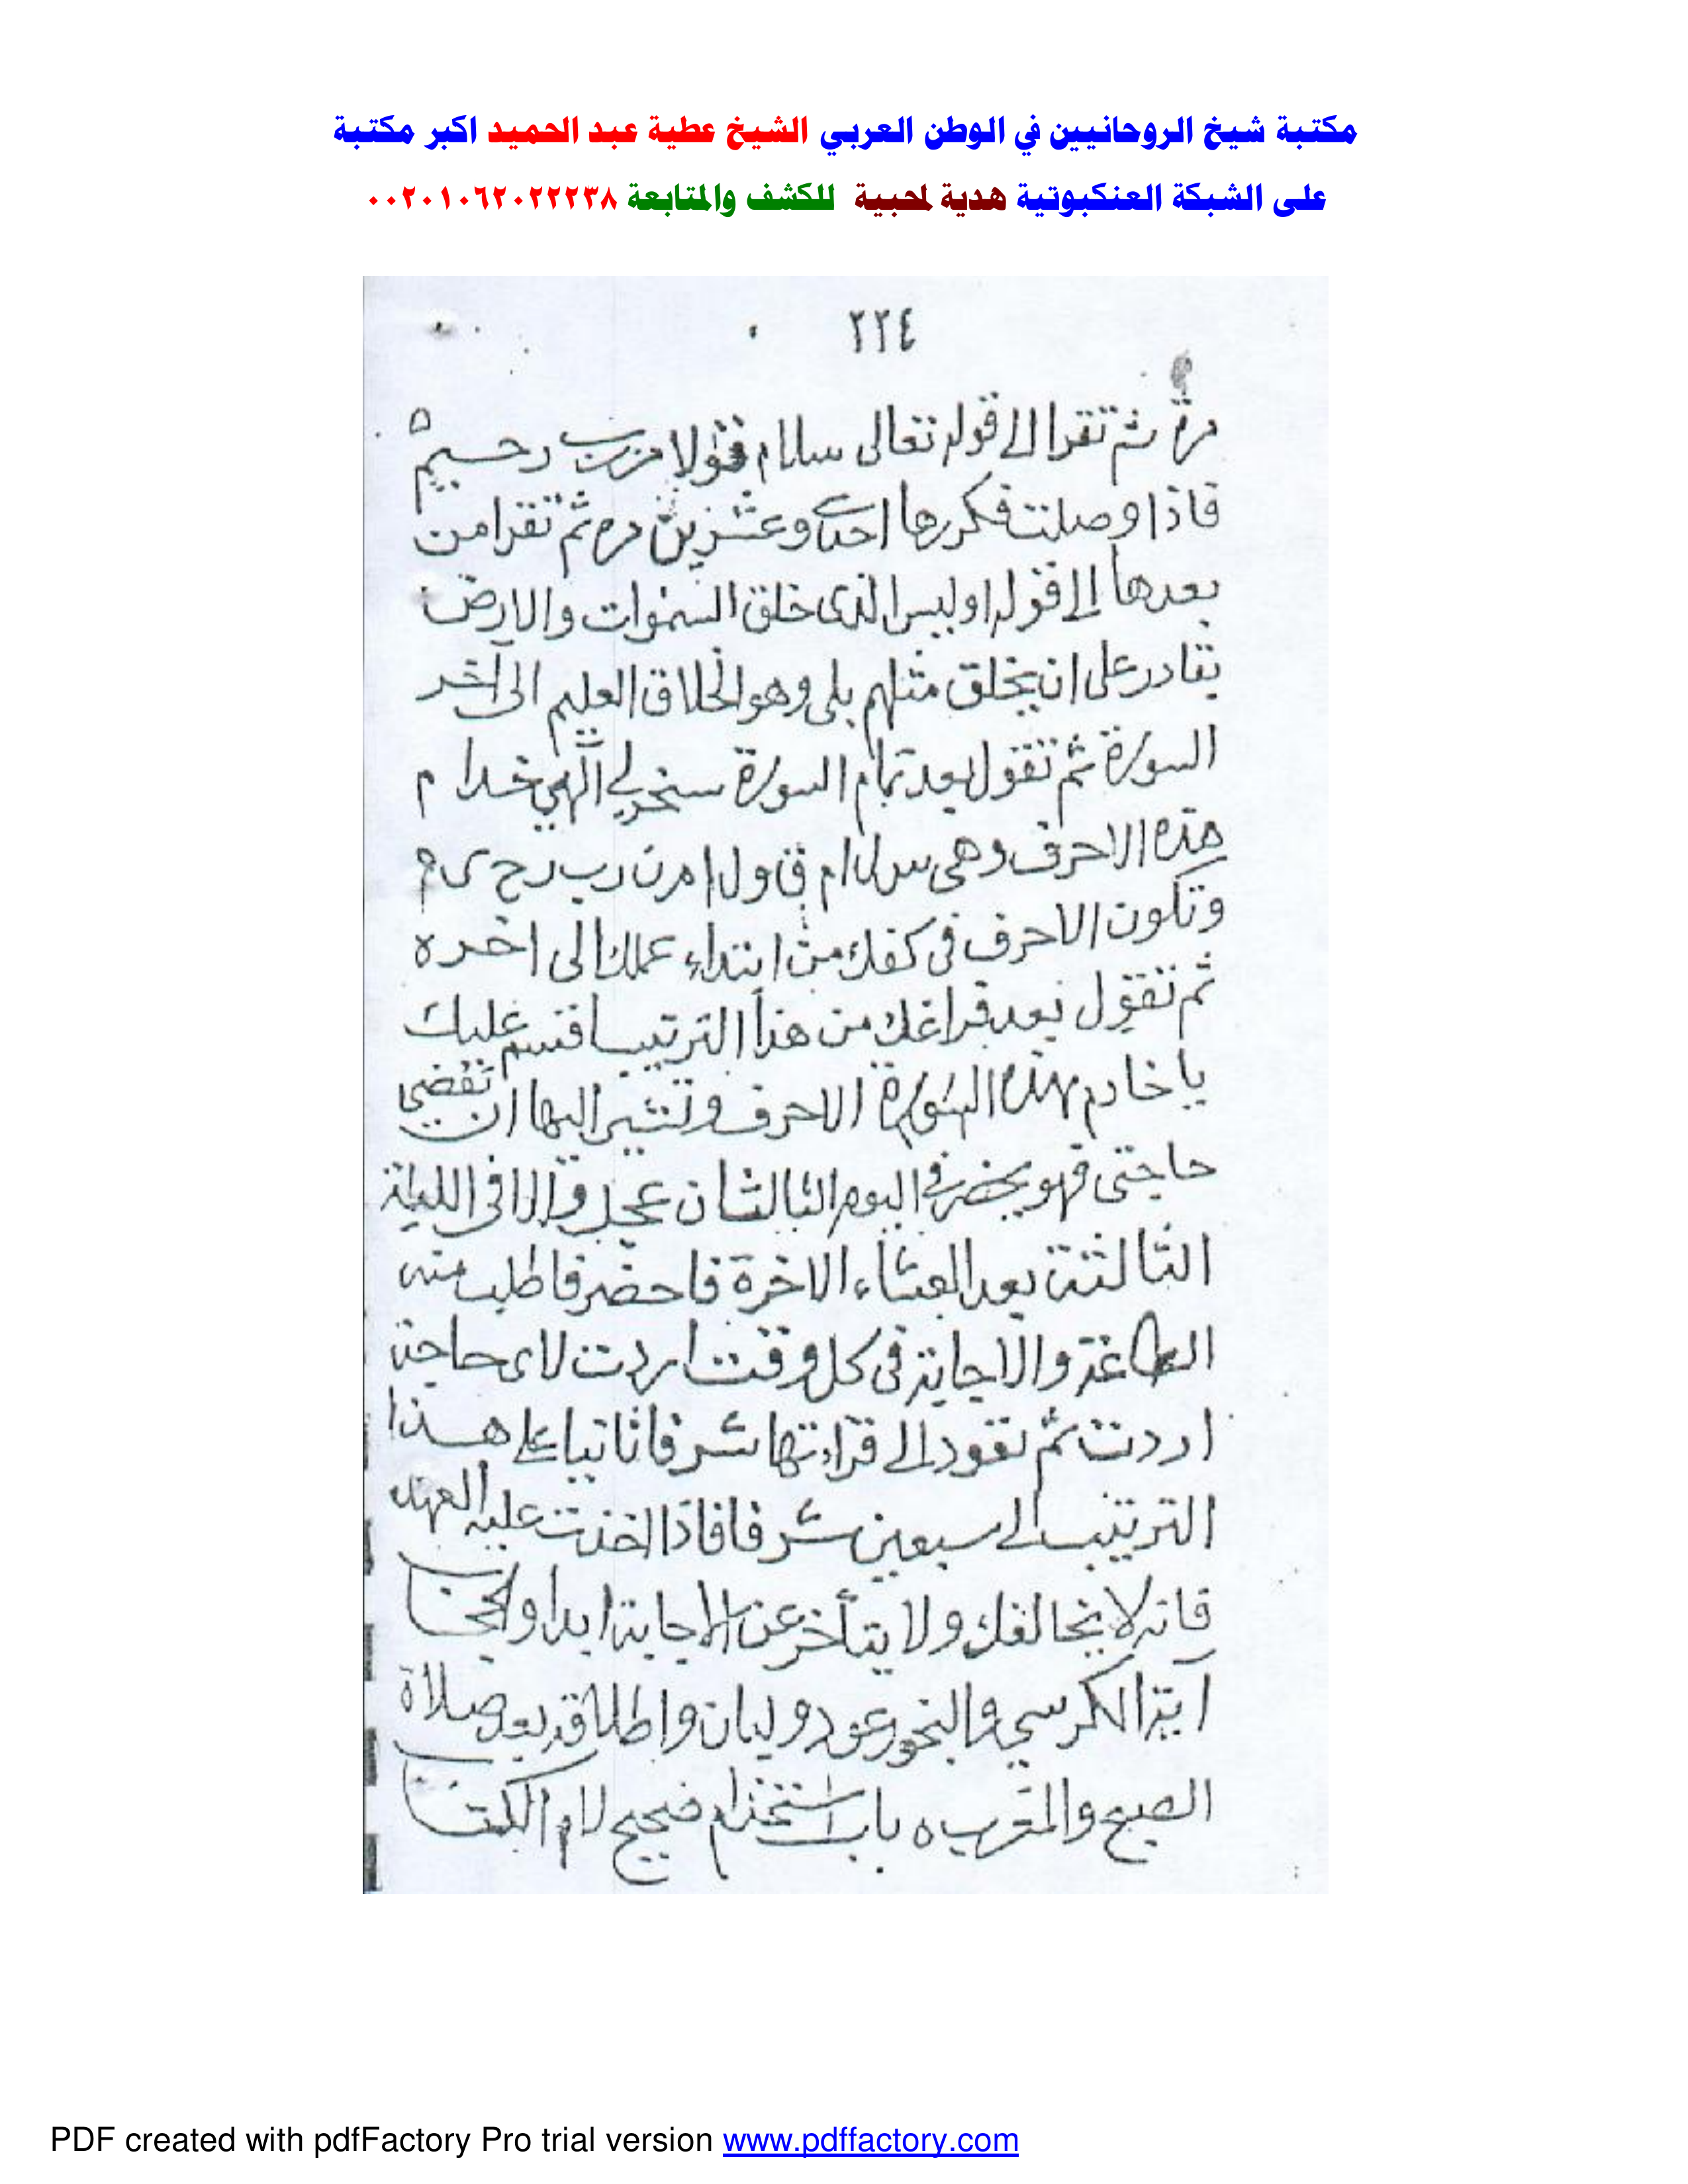 مكتبة شيخ الروحانيين في الوطن العربي الشيخ عطية عبد الحميد اكبر مكتبة
على الشبكة العنكبوتية هدية لمحبية للكشف والمتابعة ٠٠٢٠١٠٦٢٠٢٢٢٣٨
٢٢٤
مرة ثم تقرا الى قوله تعالى سلام قولا من رب رحيم ه
فاذا وصلت فكررها احدى وعشرين مره ثم تقرا من
بعدها الى قوله اوليس الذى خلق السموات والارض
بقادر على ان يخلق مثلهم بلى وهو الخلاق العليم الى آخر
السورة ثم تقول بعد تمام السورة سخر لي الهي خدام
هذه الاحرف وهى س ل ا م ق و ل ا م ن ر ب ر ح ى م
وتكون الاحرف فى كفك من ابتداء عملك الى اخره
ثم تقول بعد فراغك من هذا الترتيب اقسم عليك
يا خادم بهذه السورة الاحرف وتشير اليها ان تقضي
حاجتى فهو يحضر في اليوم الثالث ان عجل والا فى الليلة
الثالثة بعد العشاء الاخرة فاحضر فاطلب منه
الطاعة والاجابة فى كل وقت اردت لاى حاجة
اردت ثم تعود الى قراءتها شرفا ثانيا على هذا
الترتيب الى سبعين شرفا فاذا اخذت عليه العهد
فانه لا يخالفك ولا يتأخر عن الاجابة ابدا والحجاب
آية الكرسي والبخور عود ولبان واطلاقه بعد صلاة
الصبح والمغرب ه باب استخدام صحيح لام الكتاب
PDF created with pdfFactory Pro trial version www.pdffactory.com